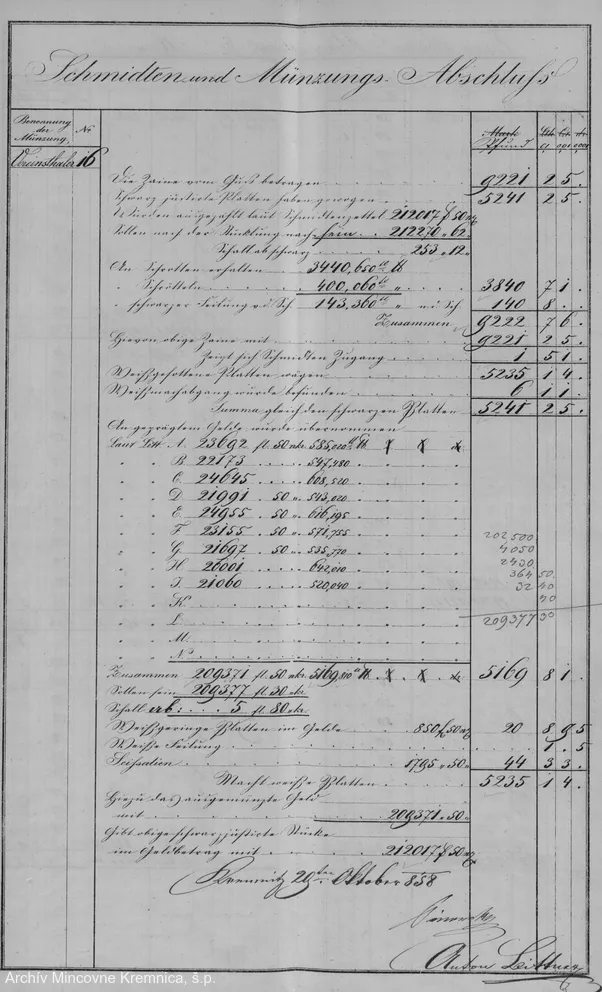 Schmidten und Münzungs-Abschluß
Benennung der Münzung. No
Mark Pfund
Vereinsthaler 16
Die Zaine vom Guß betragen 9221 2 5.
Schwarz justirte Platten haben gewogen 5241 2 5.
Wurden ausgezahlt laut Schmidtenzettel 212017 f 50 xr
Sollen nach der Stücklung nach sein 212270 " 62 "
Schall ab schwarz 253 " 12 "
An Schrotten erhalten 3440,650 ℔
" Schrötteln 400,060 " 3840 7 1.
" schwarzer Feilung v. d. Sch. 143,360 " " d. Sch. 140 8 .
Zusammen 9222 7 6.
Hievon obige Zaine mit 9221 2 5.
Zeigt sich Schmidten Zugang 1 5 1.
Weißgesottene Platten wägen 5235 1 4.
Weißmachabgang wurde befunden 6 1 1.
Summa gleich den schwarzen Platten 5241 2 5.
An geprägtem Gelde wurde übernommen
Laut Litt. A. 23692 fl. 50 nkr. 585,020 ℔
" " B 22173 547,480
" " C 24645 608,520
" " D 21991 . 50 " 543,020
" " E 24955 . 50 " 616,195
" " F 23155 . 50 " 571,755
" " G 21697 . 50 " 535,770
" " H 26001 642,010
" " I 21060 520,040
" " K
" " L
" " M
" " N
202,500
4050
2430
364 50
32 40
209377 30
Zusammen 209371 fl. 50 nkr. 5169,810 ℔ 5169 8 1.
Sollen sein 209377 fl 30 nkr.
Schall ab: 5 fl. 80 kr.
Weißgeringe Platten im Gelde 850 f 50 xr 20 8 9 5
Weiße Feilung 1. 5
Scissalien 1795 " 50 " 44 3 3.
Macht weiße Platten 5235 1 4.
Hiezu das ausgemünzte Geld
mit 209371 " 50 "
Gibt obige schwarz justirte Stücke
im Geldbetrag mit 212017 f 50 xr
Kremnitz 20ten Oktober 858
Anton Littner
Archív Mincovne Kremnica, š.p.